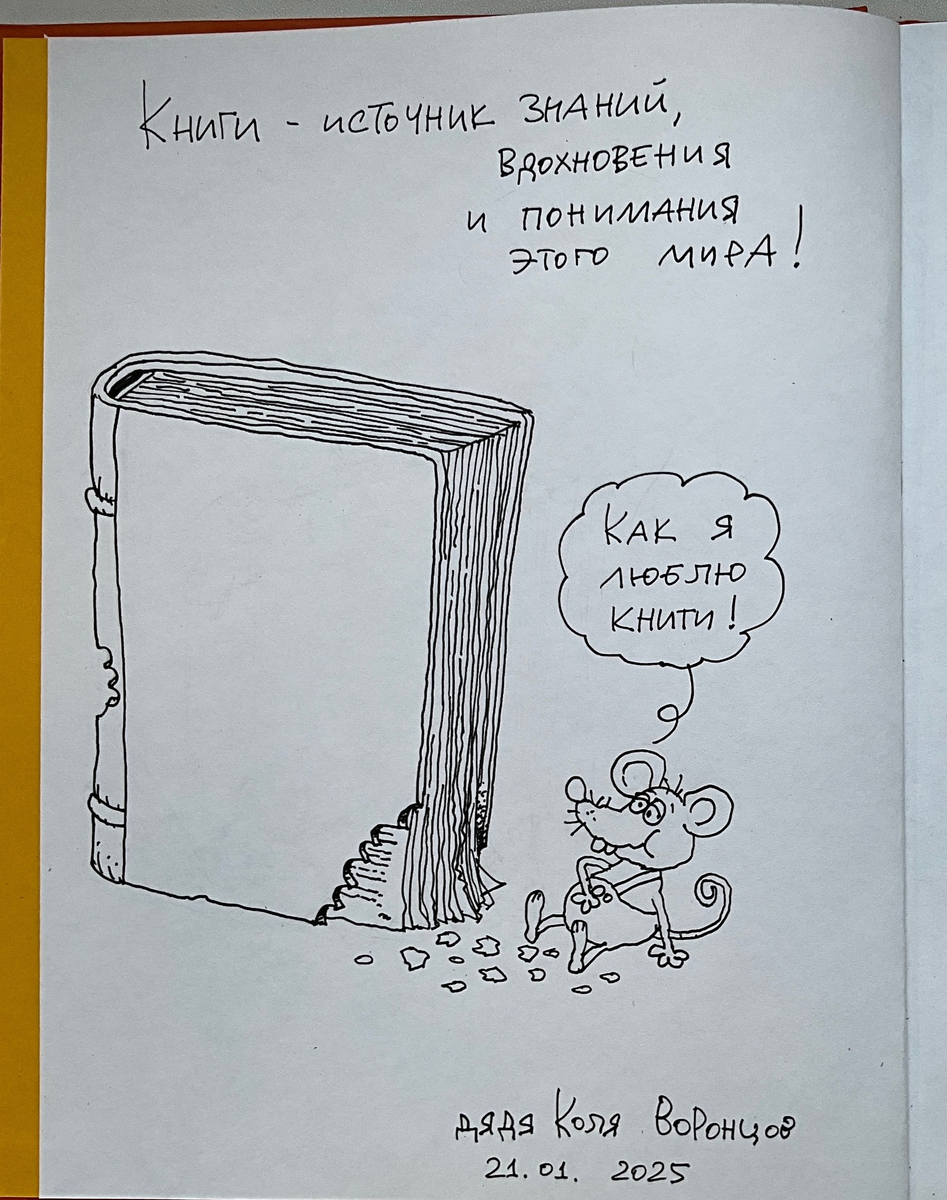 Книги - источник знаний,
вдохновения
и понимания
этого мира!
Как я
люблю
книги!
дядя Коля Воронцов
21.01. 2025